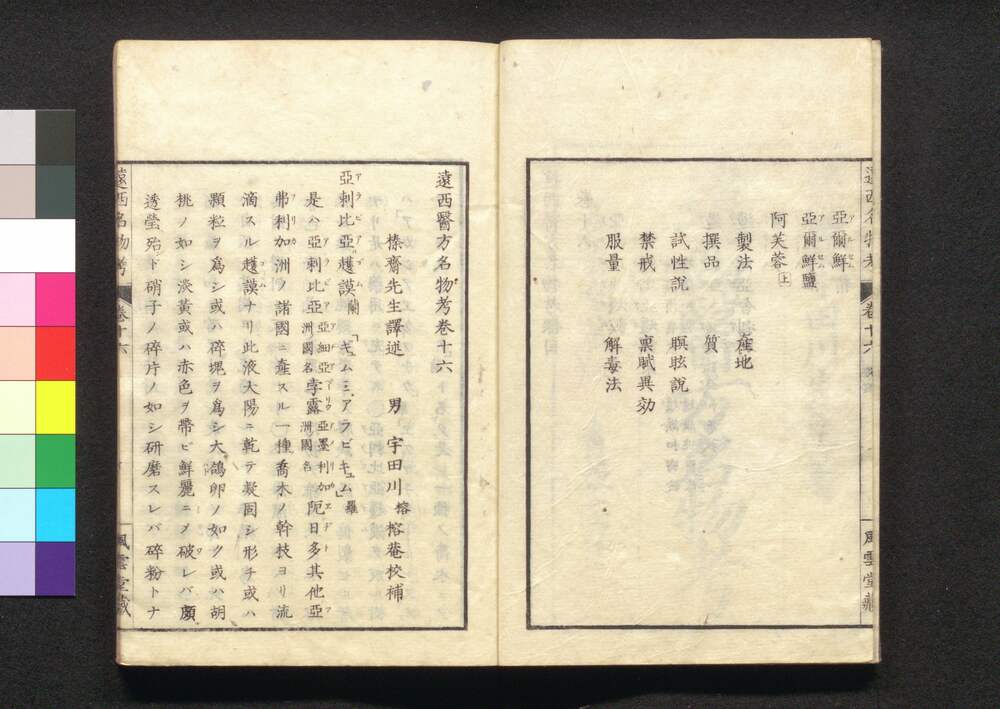 亞爾鮮
亞爾鮮鹽
阿芙蓉 上
製法 產地
撰品 質
試性說 瞑眩說
禁戒 稟賦異効
服量 解毒法
卷十六
風雲堂藏
遠西醫方名物考卷十六
榛齋先生譯述 男 宇田川榕 榕菴校補
亞刺比亞護謨 蘭「ギュムミ、アラビキュム」羅
是ハ亞刺比亞 亞細亞洲國名 孛露 亞墨利加洲國名 阨日多其他亞
弗利加洲ノ諸國ニ產スル一種喬木ノ幹枝ヨリ流
滴スル護謨ナリ此液大陽ニ乾テ凝固シ形チ或ハ
顆粒ヲ爲シ或ハ碎塊ヲ爲シ大鴿卵ノ如ク或ハ胡
桃ノ如シ淡黃或ハ赤色ヲ帶ビ鮮麗ニメ破レバ頗
透瑩殆ド硝子ノ碎片ノ如シ研磨スレバ碎粉トナ
遠西名物考 卷十六
風雲堂藏